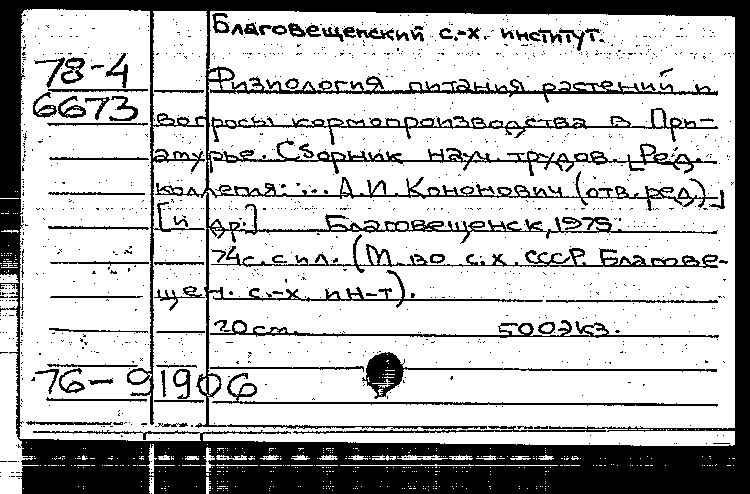 Благовещенский с.-х. институт.
78-4
6673
Физиология питания растений и
вопросы кормопроизводства в При-
амурье. Сборник науч. трудов. [Ред.
коллегия: ... А.И. Кононович (отв.ред)
[и др.] Благовещенск, 1975.
74с. с ил. (М-во с.х. СССР. Благове-
щен. с.-х. ин-т).
20см. 500экз.
76-91906